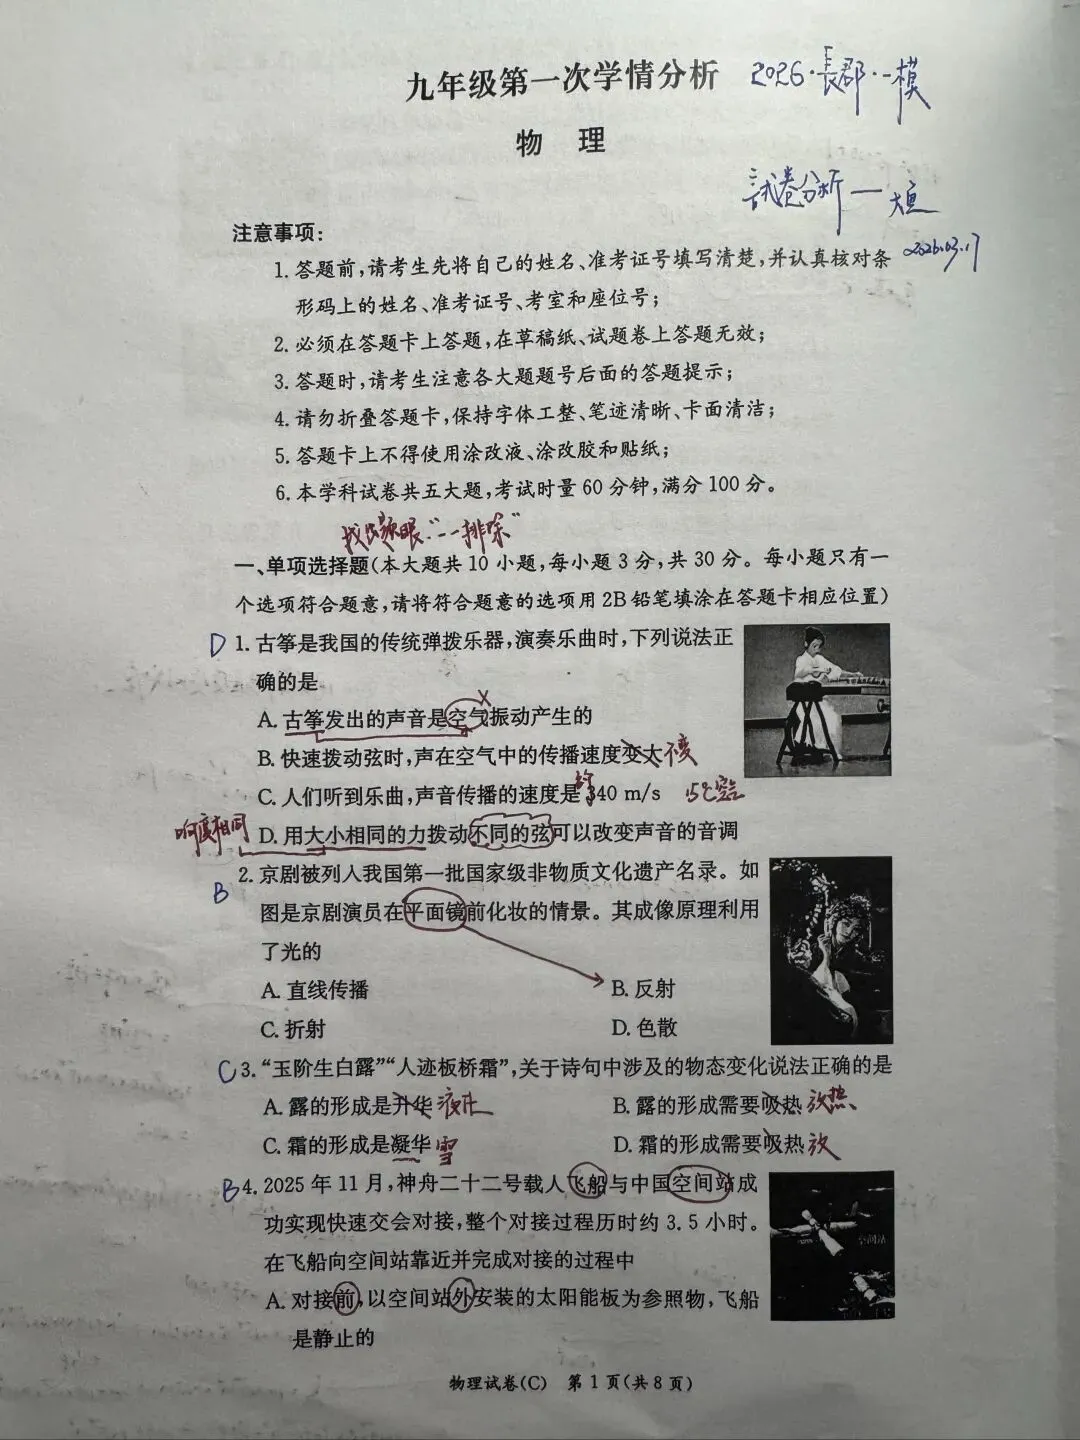 九年级第一次学情分析 2026·長郡·一模
物 理
試卷分析一
2026.03.17
注意事项：
1. 答题前，请考生先将自己的姓名、准考证号填写清楚，并认真核对条
形码上的姓名、准考证号、考室和座位号；
2. 必须在答题卡上答题，在草稿纸、试题卷上答题无效；
3. 答题时，请考生注意各大题题号后面的答题提示；
4. 请勿折叠答题卡，保持字体工整、笔迹清晰、卡面清洁；
5. 答题卡上不得使用涂改液、涂改胶和贴纸；
6. 本学科试卷共五大题，考试时量 60 分钟，满分 100 分。
找出题眼“一一排除”
一、单项选择题(本大题共 10 小题，每小题 3 分，共 30 分。每小题只有一
个选项符合题意，请将符合题意的选项用 2B 铅笔填涂在答题卡相应位置)
D 1. 古筝是我国的传统弹拨乐器，演奏乐曲时，下列说法正
确的是
A. 古筝发出的声音是空气振动产生的
B. 快速拨动弦时，声在空气中的传播速度变大 不变
C. 人们听到乐曲，声音传播的速度是 340 m/s 15℃空气
响度相同 D. 用大小相同的力拨动不同的弦可以改变声音的音调
B 2. 京剧被列入我国第一批国家级非物质文化遗产名录。如
图是京剧演员在平面镜前化妆的情景。其成像原理利用
了光的
A. 直线传播 B. 反射
C. 折射 D. 色散
C 3. “玉阶生白露”“人迹板桥霜”，关于诗句中涉及的物态变化说法正确的是
A. 露的形成是升华 液化 B. 露的形成需要吸热 放热
C. 霜的形成是凝华 雪 D. 霜的形成需要吸热 放
B 4. 2025 年 11 月，神舟二十二号载人飞船与中国空间站成
功实现快速交会对接，整个对接过程历时约 3.5 小时。
在飞船向空间站靠近并完成对接的过程中
A. 对接前，以空间站外安装的太阳能板为参照物，飞船
是静止的
物理试卷(C) 第 1 页(共 8 页)